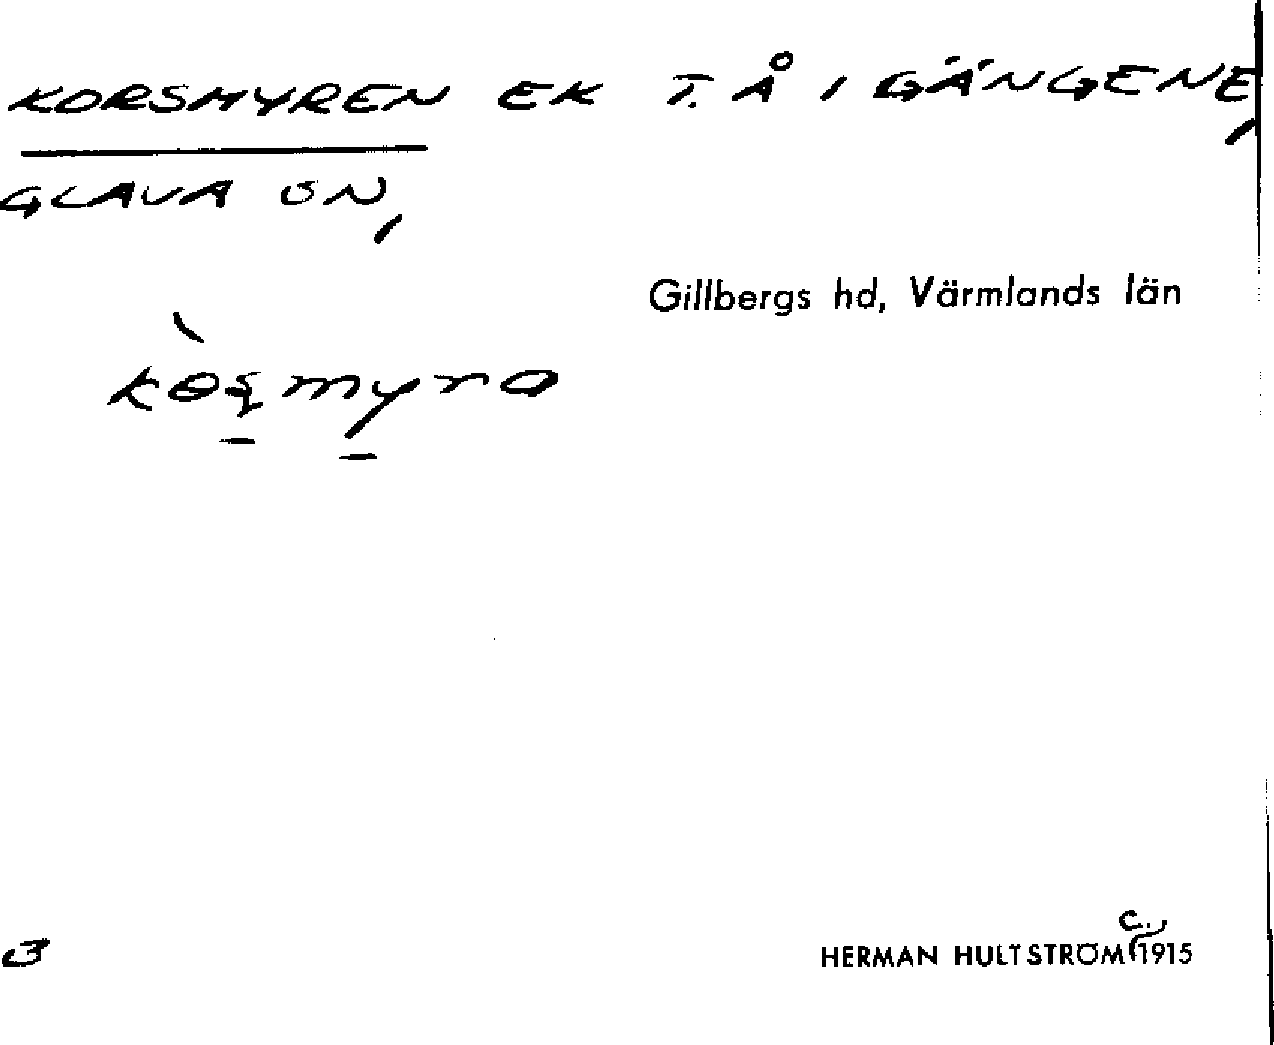 KORSMYREN EK T. Å I GÄNGENE,
GLAVA SN,
Gillbergs hd, Värmlands län
HERMAN HULTSTRÖM C. 1915